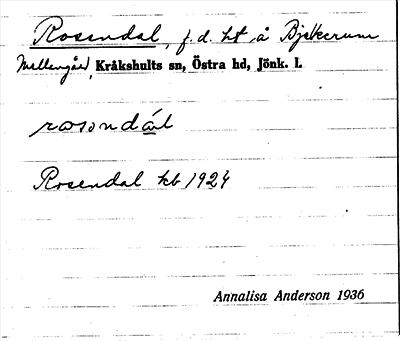 Rosendal, f.d. ht å Bjälkerum
Mellangård, Kråkshults sn, Östra hd, Jönk. l.
rosondál
Rosendal kb 1924
Annalisa Anderson 1936